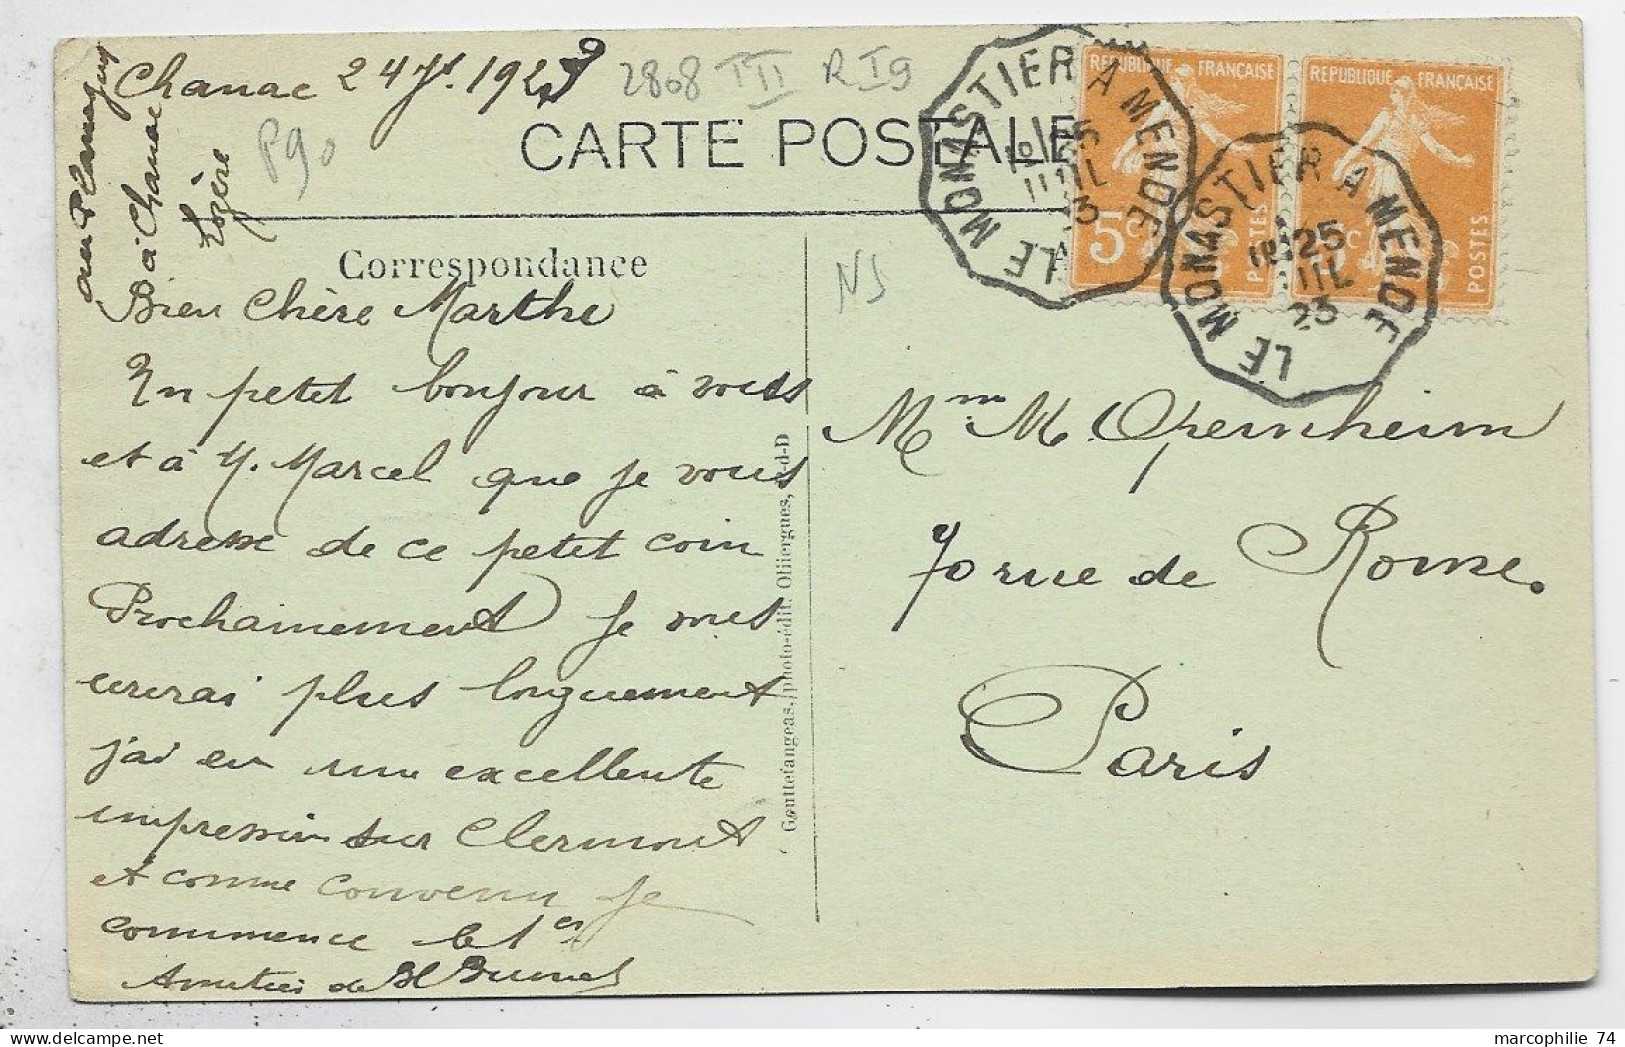 Chanac 24 Jt 1923
2868 III R I9
P90
CARTE POSTALE
à Chanac
Lozère
Correspondance
NS
REPUBLIQUE FRANÇAISE
5c
POSTES
REPUBLIQUE FRANÇAISE
POSTES
LE MONASTIER A MENDE
25
LE MONASTIER A MENDE
25
23
Bien Chère Marthe
Un petit bonjour à vous
et à M. Marcel que je vous
adresse de ce petit coin
Prochainement je vous
écrirai plus longuement
j'ai eu une excellente
impression sur Clermont
et comme convenu je
commence le 1er
Amitiés de
Mme M. Openheim
70 rue de Rome.
Paris
Gouttefangeas, photo-édit. Olliergues, P-d-D
marcophilie 74